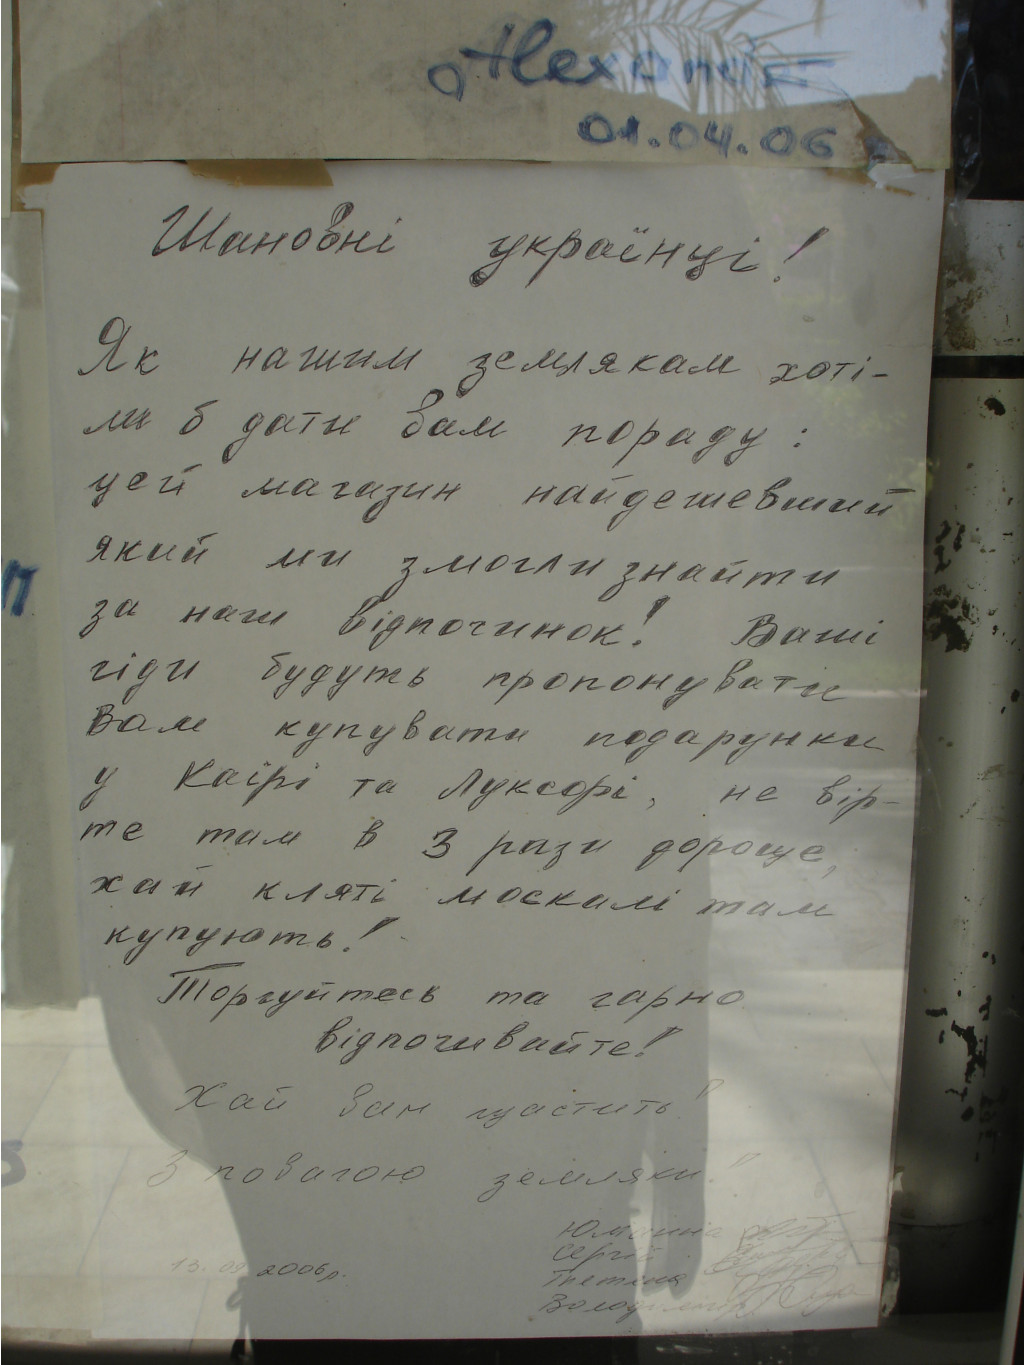 01.04.06
Шановні українці!
Як нашим землякам хоті-
ли б дати вам пораду:
цей магазин найдешевший
який ми змогли знайти
за наш відпочинок! Ваші
гіди будуть пропонувати
Вам купувати подарунки
у Каїрі та Луксорі, не вір-
те там в 3 рази дороще,
хай кляті москалі там
купують!
Торгуйтесь та гарно
відпочивайте!
Хай вам щастить!
З повагою земляки!
Сергій
Тетяна
Володимир
2006р.